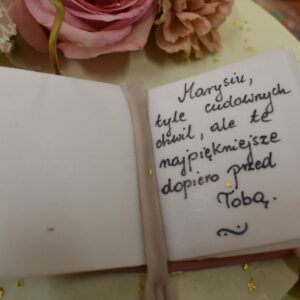 Marysiu,
tyle cudownych
chwil, ale te
najpiękniejsze
dopiero przed
Tobą.